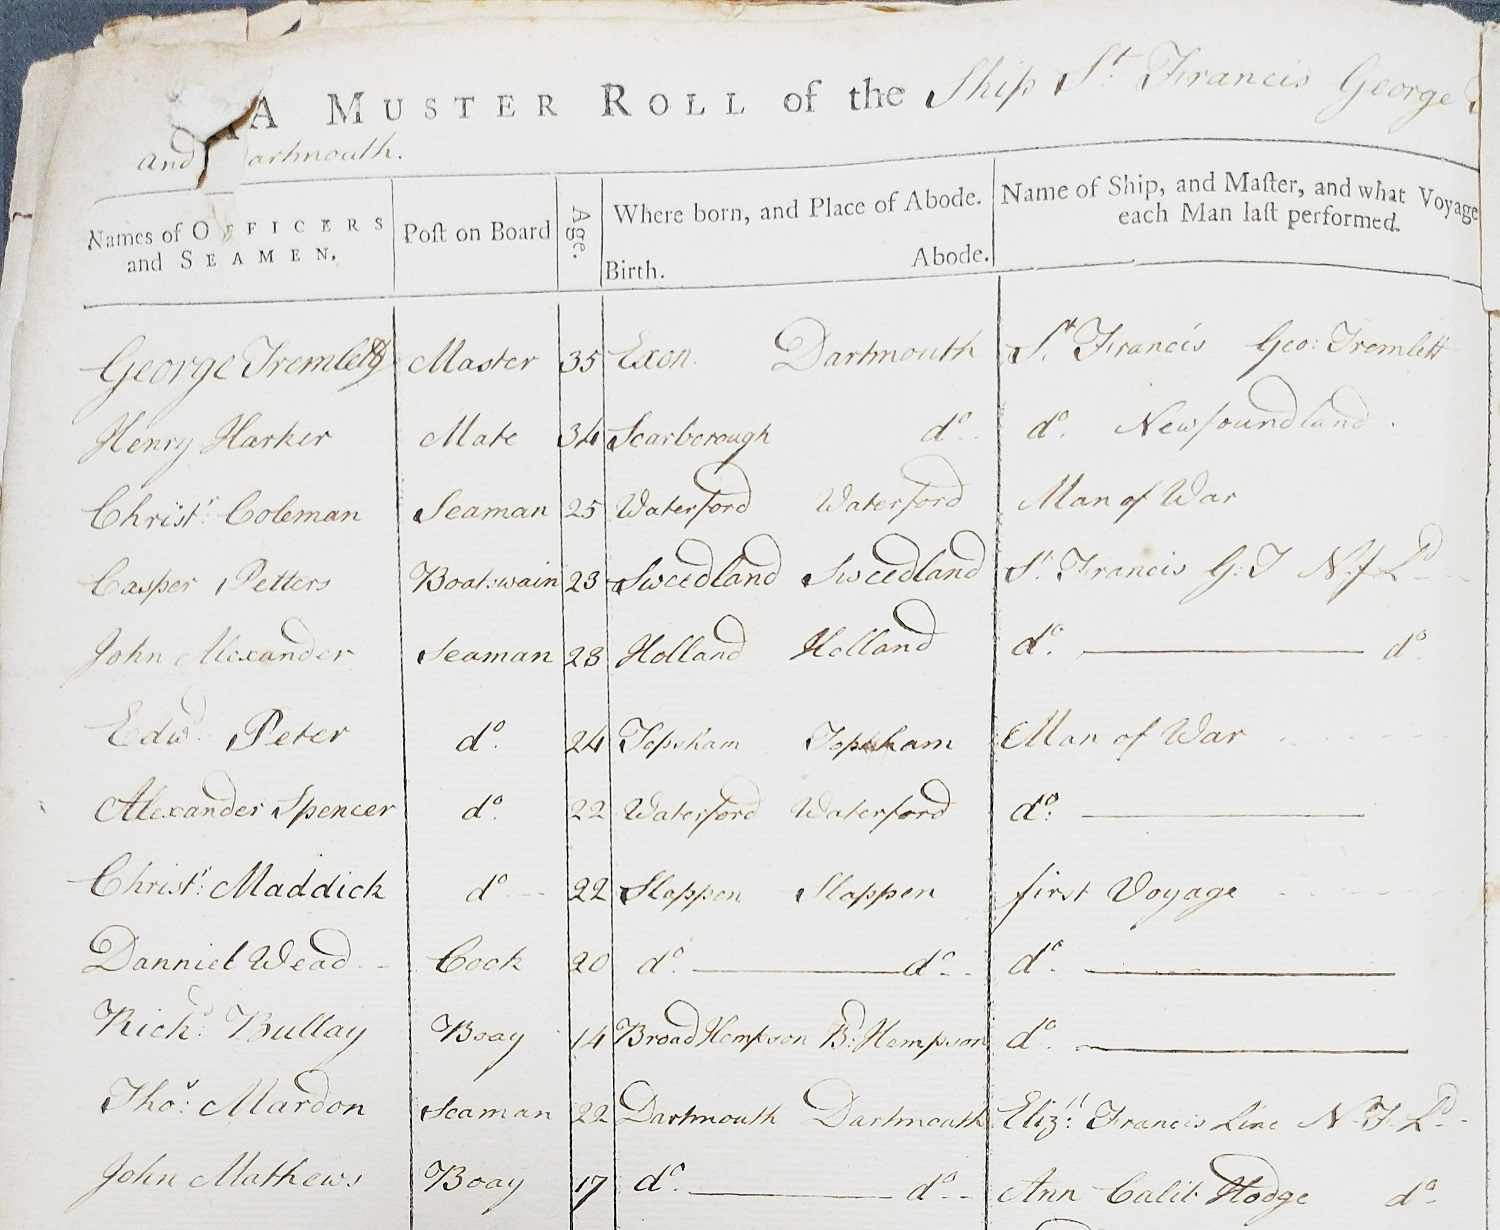 A MUSTER ROLL of the Ship St. Francis George
and artmouth.
Names of OFFICERS and SEAMEN. Post on Board Age. Where born, and Place of Abode. Birth. Abode. Name of Ship, and Master, and what Voyage each Man last performed.
George Tremlett Master 35 Exon. Dartmouth St. Francis Geo: Tremlett
Henry Harker Mate 34 Scarborough do. do. Newfoundland.
Christr. Coleman Seaman 25 Waterford Waterford Man of War
Casper Petters Boatswain 23 Sweedland Sweedland St. Francis G:T N.F Ld
John Alexander Seaman 28 Holland Holland do. do.
Edwd. Peter do. 24 Topsham Topsham Man of War
Alexander Spencer do. 22 Waterford Waterford do.
Christr: Maddick do 22 Slappen Slappen first Voyage
Danniel Wead Cook 20 do. do. do.
Richd: Bullay Boay 14 Broad Hempson Bd: Hempson do.
Thos: Mardon Seaman 22 Dartmouth Dartmouth Elizth: Francis Line N.F. Ld
John Mathews Boay 17 do. do. Ann Calib Hodge do.